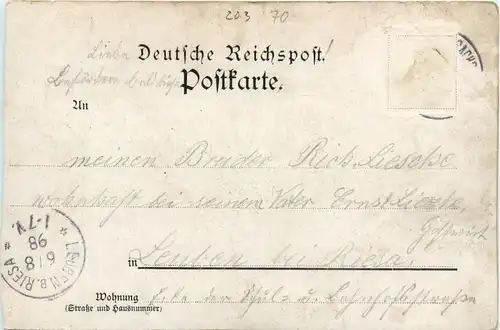 203 70
Liebe Deutsche Reichspost!
Postkarte.
An
meinen Bruder Rich. Liesche
wohnhaft bei seinem Vater Ernst Liesche
in Leuben bei Riesa
Wohnung Ecke der Schul- u. Bahnhofstrasse
(Straße und Hausnummer)
LEUBEN B. RIESA
6 8
98
1-7 V.